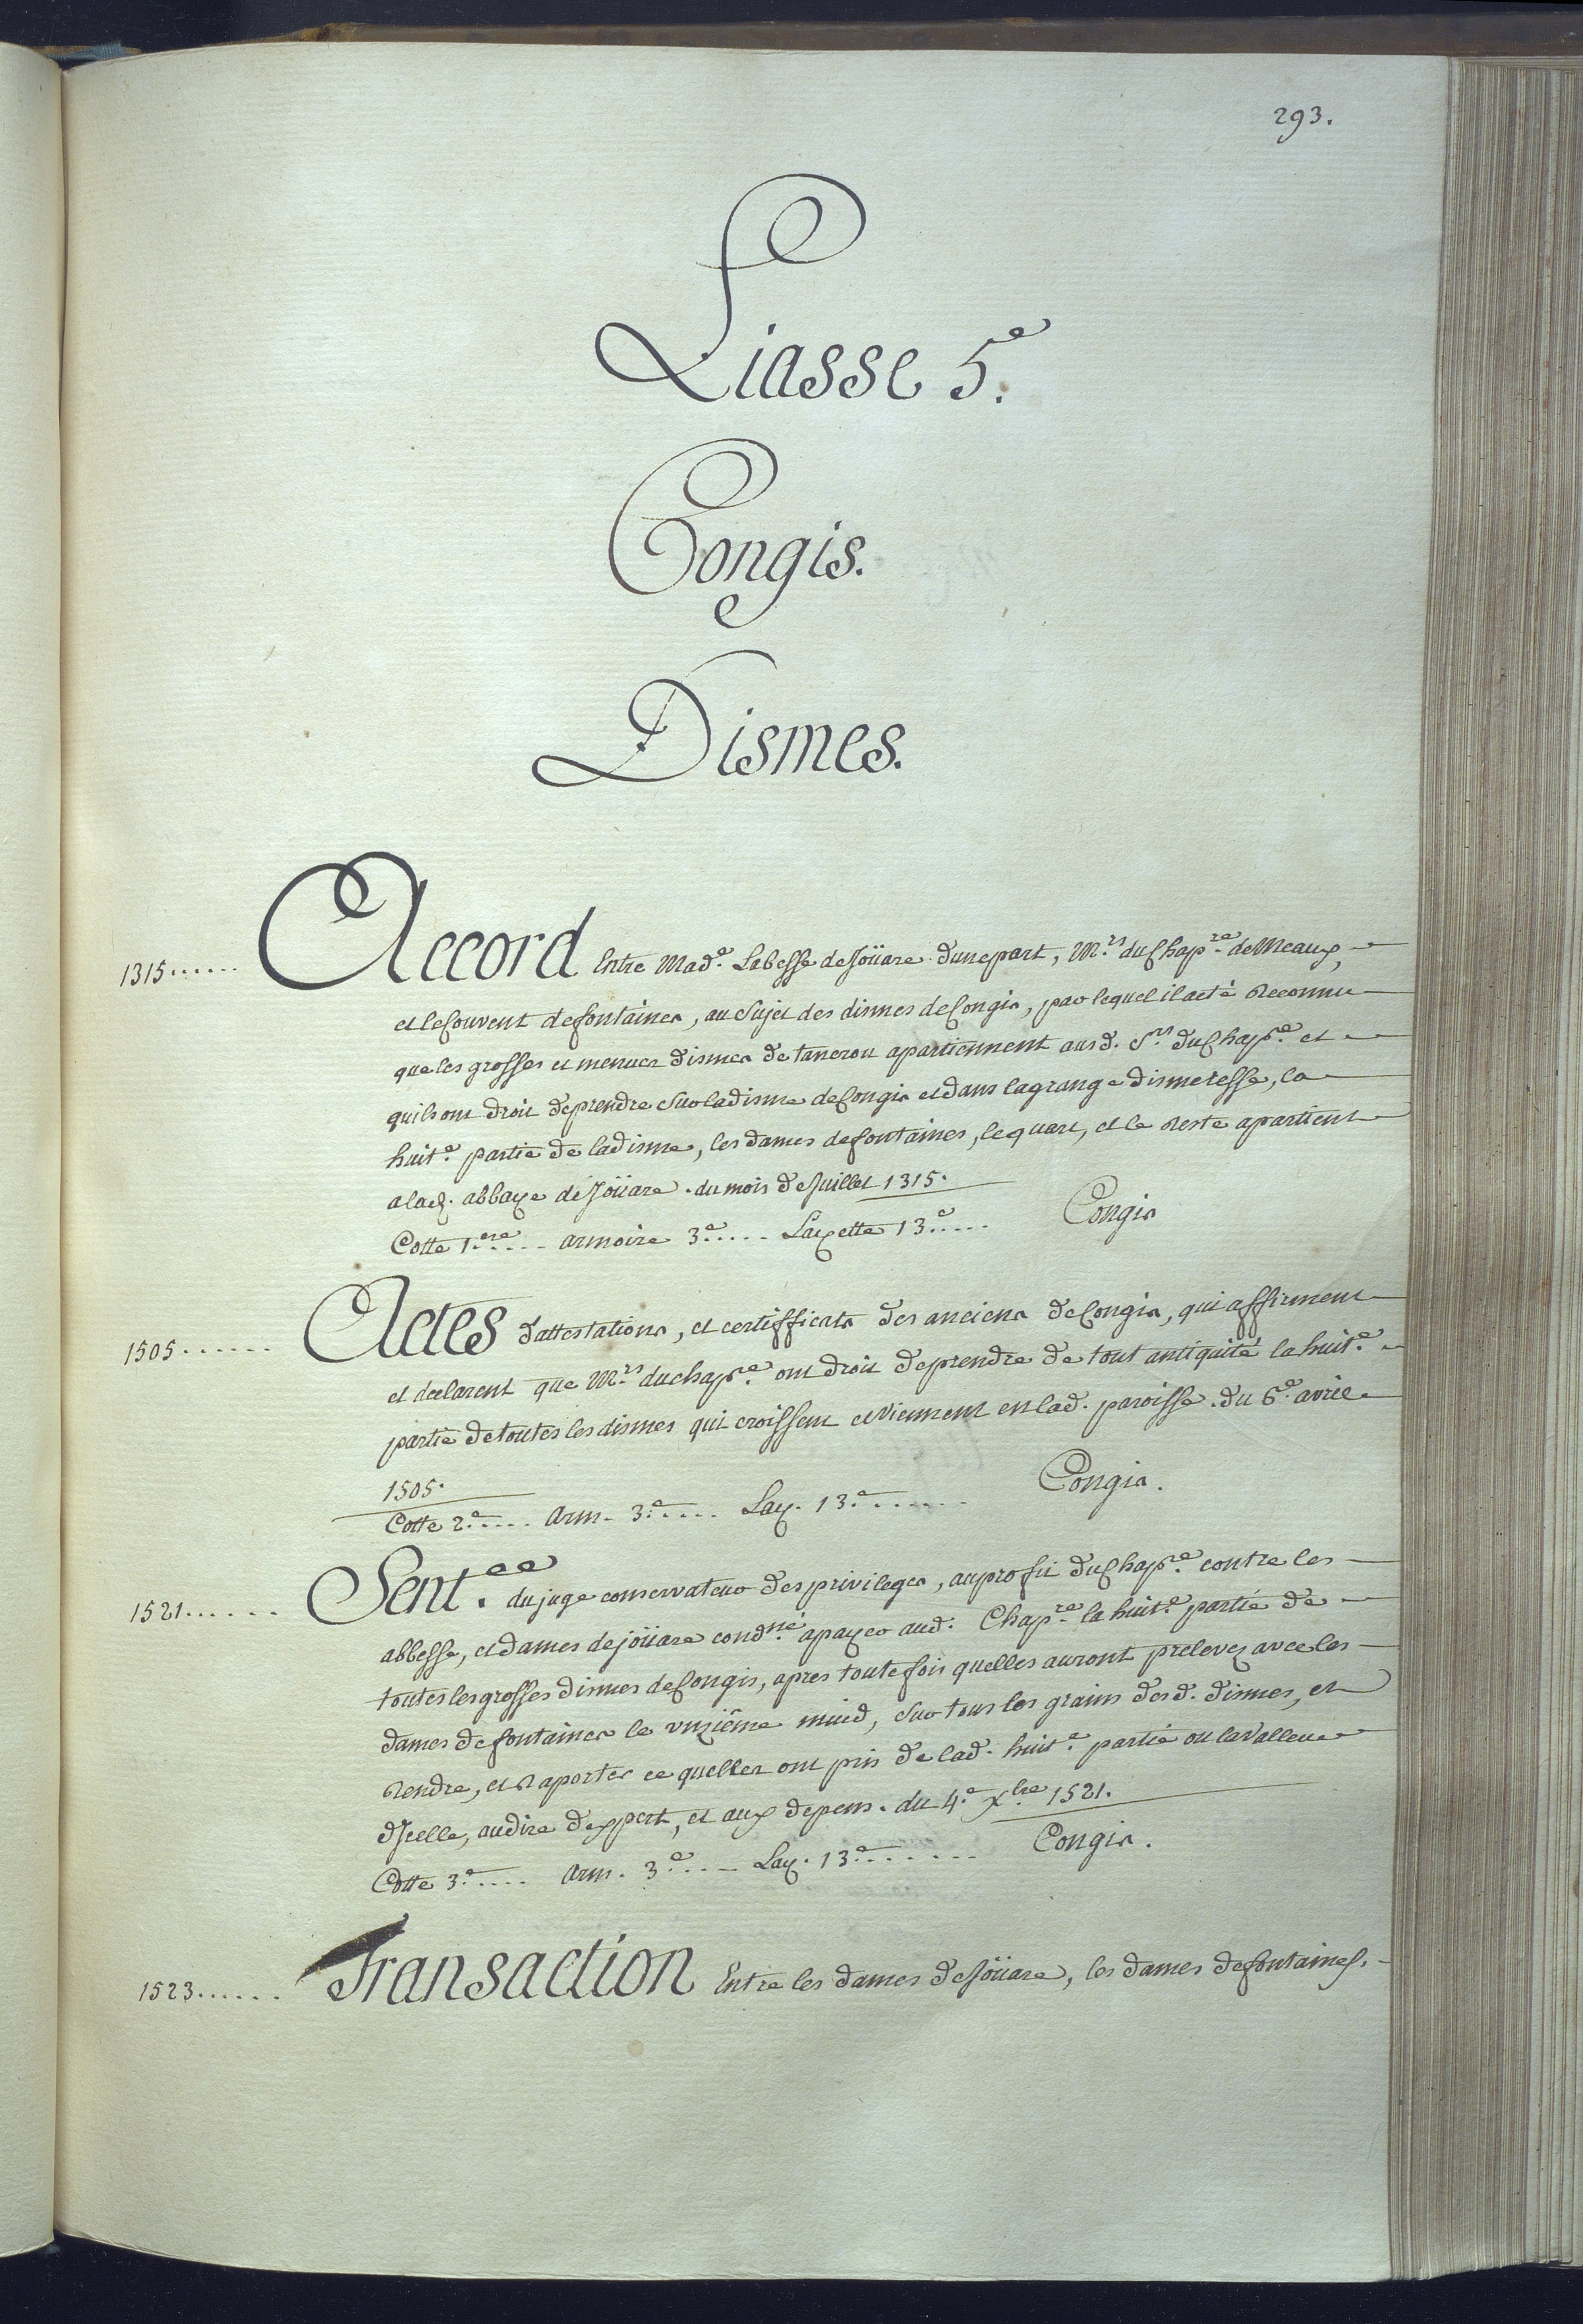 293.
Liasse 5.e
Congis.
Dismes.
1315...... Accord Entre Mad.e Labesse de Joüare d'une part, M.rs du Chap.re de Meaux,
et le Couvent de fontaines, au Sujet des dismes de Congis, par lequel il a eté Reconnu
que les grosses et menues dismes de tancrou apartiennent aus d. S.rs du Chap.re et
quils ont droit de prendre Sur la disme de Congis et dans la grange dismeresse, la
huit.e partie de la disme, les dames de fontaines, le quart, et le Reste apartient
a lad. abbaye de Joüare. du mois de Juillet 1315.
Cotte 1.ere.... armoire 3.e.... Layette 13.e.... Congis
1505...... Actes d'attestations, et certifficats des anciens de Congis, qui affirment
et declarent que M.rs du chap.re ont droit de prendre de tout antiquité la huit.e
partie de toutes les dismes qui croissent et Viennent en lad. paroisse. du 6.e avril
1505.
Cotte 2.e.... arm. 3.e.... Lay. 13.e...... Congis.
1521...... Sent.ce du juge conservateur des privileges, au profit du Chap.re contre les
abbesse, et dames de joüare cond.né a payer aud. Chap.re la huit.e partie de
toutes les grosses dismes de Congis, apres toutefois quelles auront prelevez avec les
dames de fontaines le unziême muid, Sur tous les grains desd. dismes, et
Rendre, et Raporter ce quelles ont pris de lad. huit.e partie ou la Valleur
d'Jcelle, au dire d'expert, et aux depens. du 4.e Xbre 1521.
Cotte 3.e.... arm. 3.e.... Lay. 13.e...... Congis.
1523...... Transaction Entre les dames de Joüare, les dames de fontaines,